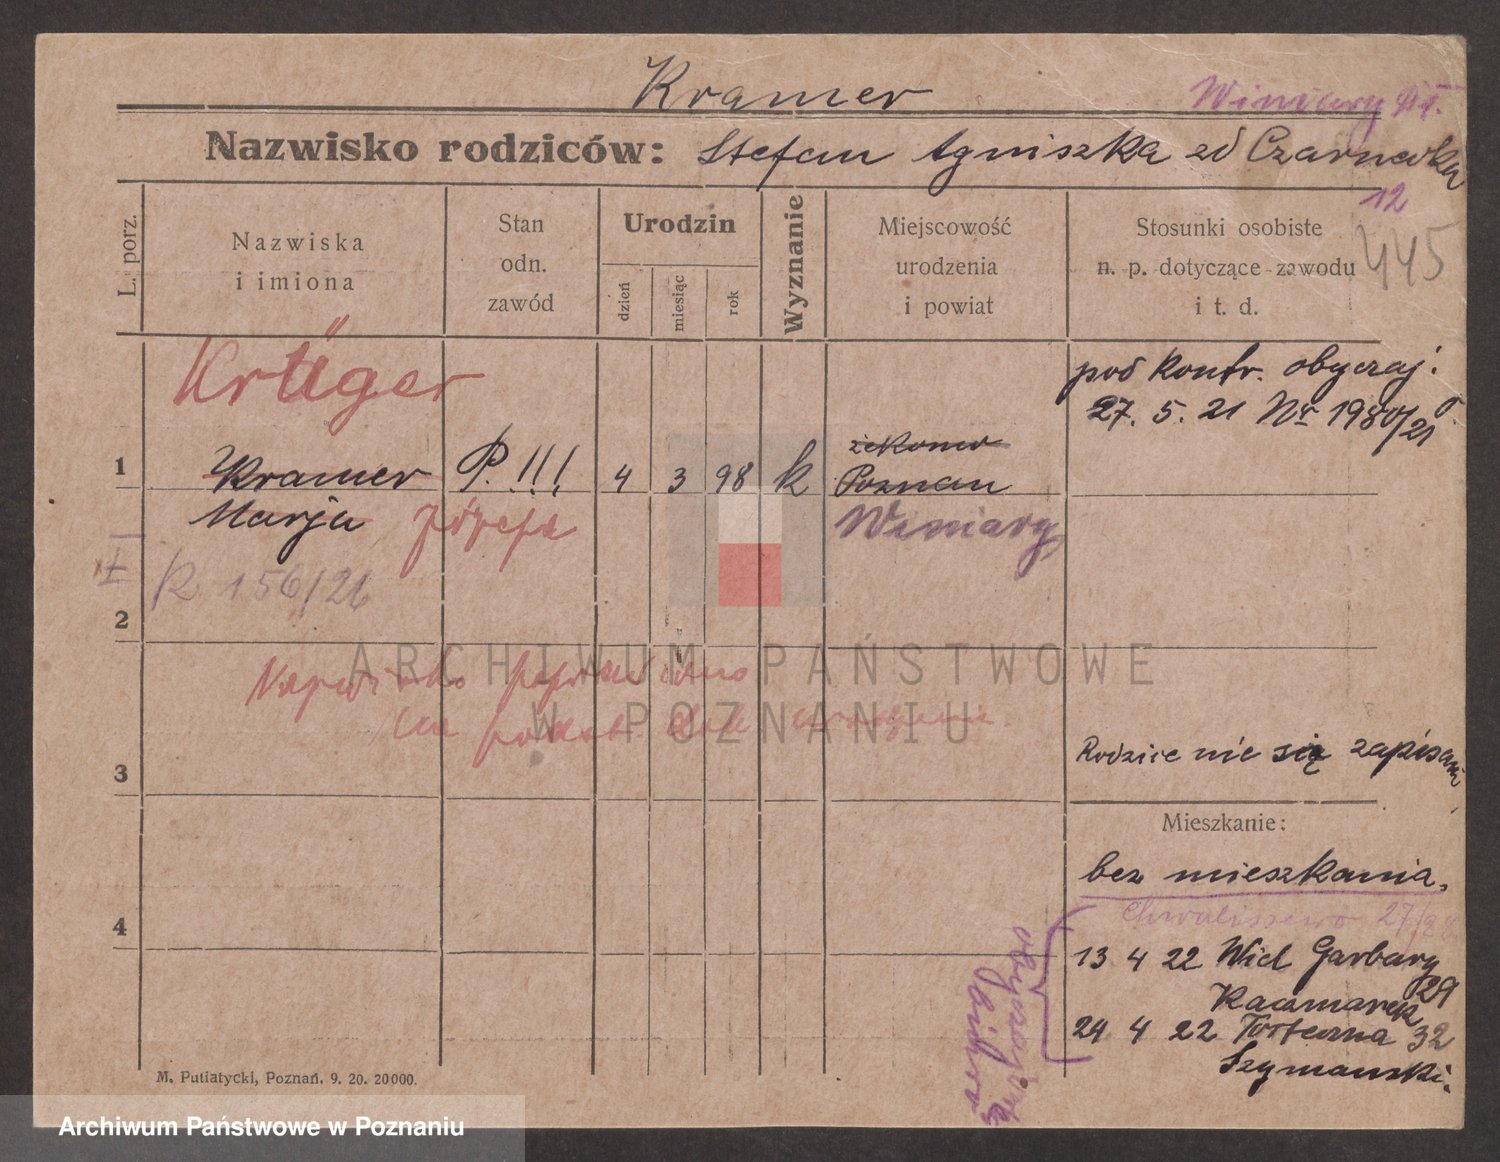 Kramer
Winiary
Nazwisko rodziców: Stefan Agniszka zd Czarnecka
12
445
L. porz.
Nazwiska
i imiona
Stan
odn.
zawód
Urodzin
dzień
miesiąc
rok
Wyznanie
Miejscowość
urodzenia
i powiat
Stosunki osobiste
n. p. dotyczące zawodu
i t. d.
Krüger
pod kontr. obyczaj.
27. 5. 21 Nr 1980/21
1
Kramer
P. !!!
4
3
98
k
Poznan
Marja Józefa
Winiary
I
R 156/26
2
ARCHIWUM PAŃSTWOWE
W POZNANIU
Nazwisko poprawiono
na podst. urodzenia.
3
Rodzice nie są zapisani
Mieszkanie:
bez mieszkania.
Chwaliszewo 27/28
4
13 4 22 Wiel Garbary 29
Kaczmarek
24 4 22 Torteczna 32
Szymanski.
M. Putiatycki, Poznań, 9. 20. 20000.
Archiwum Państwowe w Poznaniu